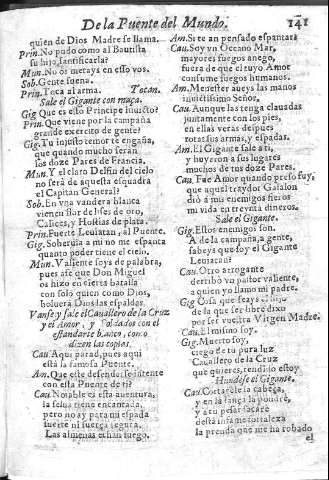 De la Puente del Mundo. 141
quien de Dios Madre se llama.
Prin. No pudo como al Bautista
su hijo, santificarla?
Mun. No os metays en esso vos.
Sob. Gente suena.
Prin. Toca al arma. Tocan.
Sale el Gigante con maça.
Gig. Que es esto Principe inuicto?
Prin. Que viene por la campaña
grande exercito de gente?
Gig. Tu injusto temor te engaña,
que quando mucho serán
los doze Pares de Francia.
Mun. Y el claro Delfin del cielo
no será de aquesta esquadra
el Capitan General?
Sob. En vna vandera blanca
vienen flor de lises de oro,
Calices, y Hostias de plata.
Prin. Fuerte Leuiatan, al Puente.
Gig. Soberuia a mi no me espanta
quanto poder tiene el cielo.
Mun. Valiente soys de palabra,
pues àse que Don Miguel
os hizo en cierta batalla
con solo quien como Dios,
boluer à Dios las espaldas.
Vanse y sale el Cauallero de la Cruz
y el Amor, y Soldados con el
estandarte blanco, como
dizen las coplas.
Cau. Aqui parad, pues aqui
está la famosa Puente.
Am. Que este defensor se sustente
con esta Puente de ti?
Cau. Notable es esta auentura,
la selua tiene encantada,
pero no ay para mi espada
fuerte ni fuerça segura.
Las almenas echan fuego.
Am. Si te an pensado espantar?
Cau. Soy vn Oceano Mar,
mayores fuegos anego,
fuera de que el tuyo Amor
consume fuegos humanos.
Am. Menester aueys las manos
inuictissimo Señor,
Cau. Aunque las tenga clauadas
juntamente con los pies,
en ellas veras despues
rotas sus armas, y espadas.
Am. El Gigante sale a ti,
y huyeron a sus lugares
muchos de tus doze Pares.
Cau. Fue Amor quando preso fuy,
que aquel traydor Galalon
dió a mis enemigos fieros
mi vida en treynta dineros.
Sale el Gigante.
Gig. Estos enemigos son.
A de la campaña, a gente,
sabeys que soy el Gigante
Leuiatan?
Cau. Otro arrogante
derribò vn pastor valiente,
a quien yo llamo mi padre.
Gig. Cosa que seays el hijo
de la que ser libre dixo
por ser vuestra Virgen Madre.
Cau. El mismo soy.
Gig. Muerto soy,
ciego de tu pura luz
Cauallero de la Cruz
que quieres, rendido estoy
Hundese el Gigante.
Cau. Cortarete la cabeça,
y en la lança la pondre,
y a tu pesar sacarè
desta infame fortaleza
la prenda que me ha robado
el